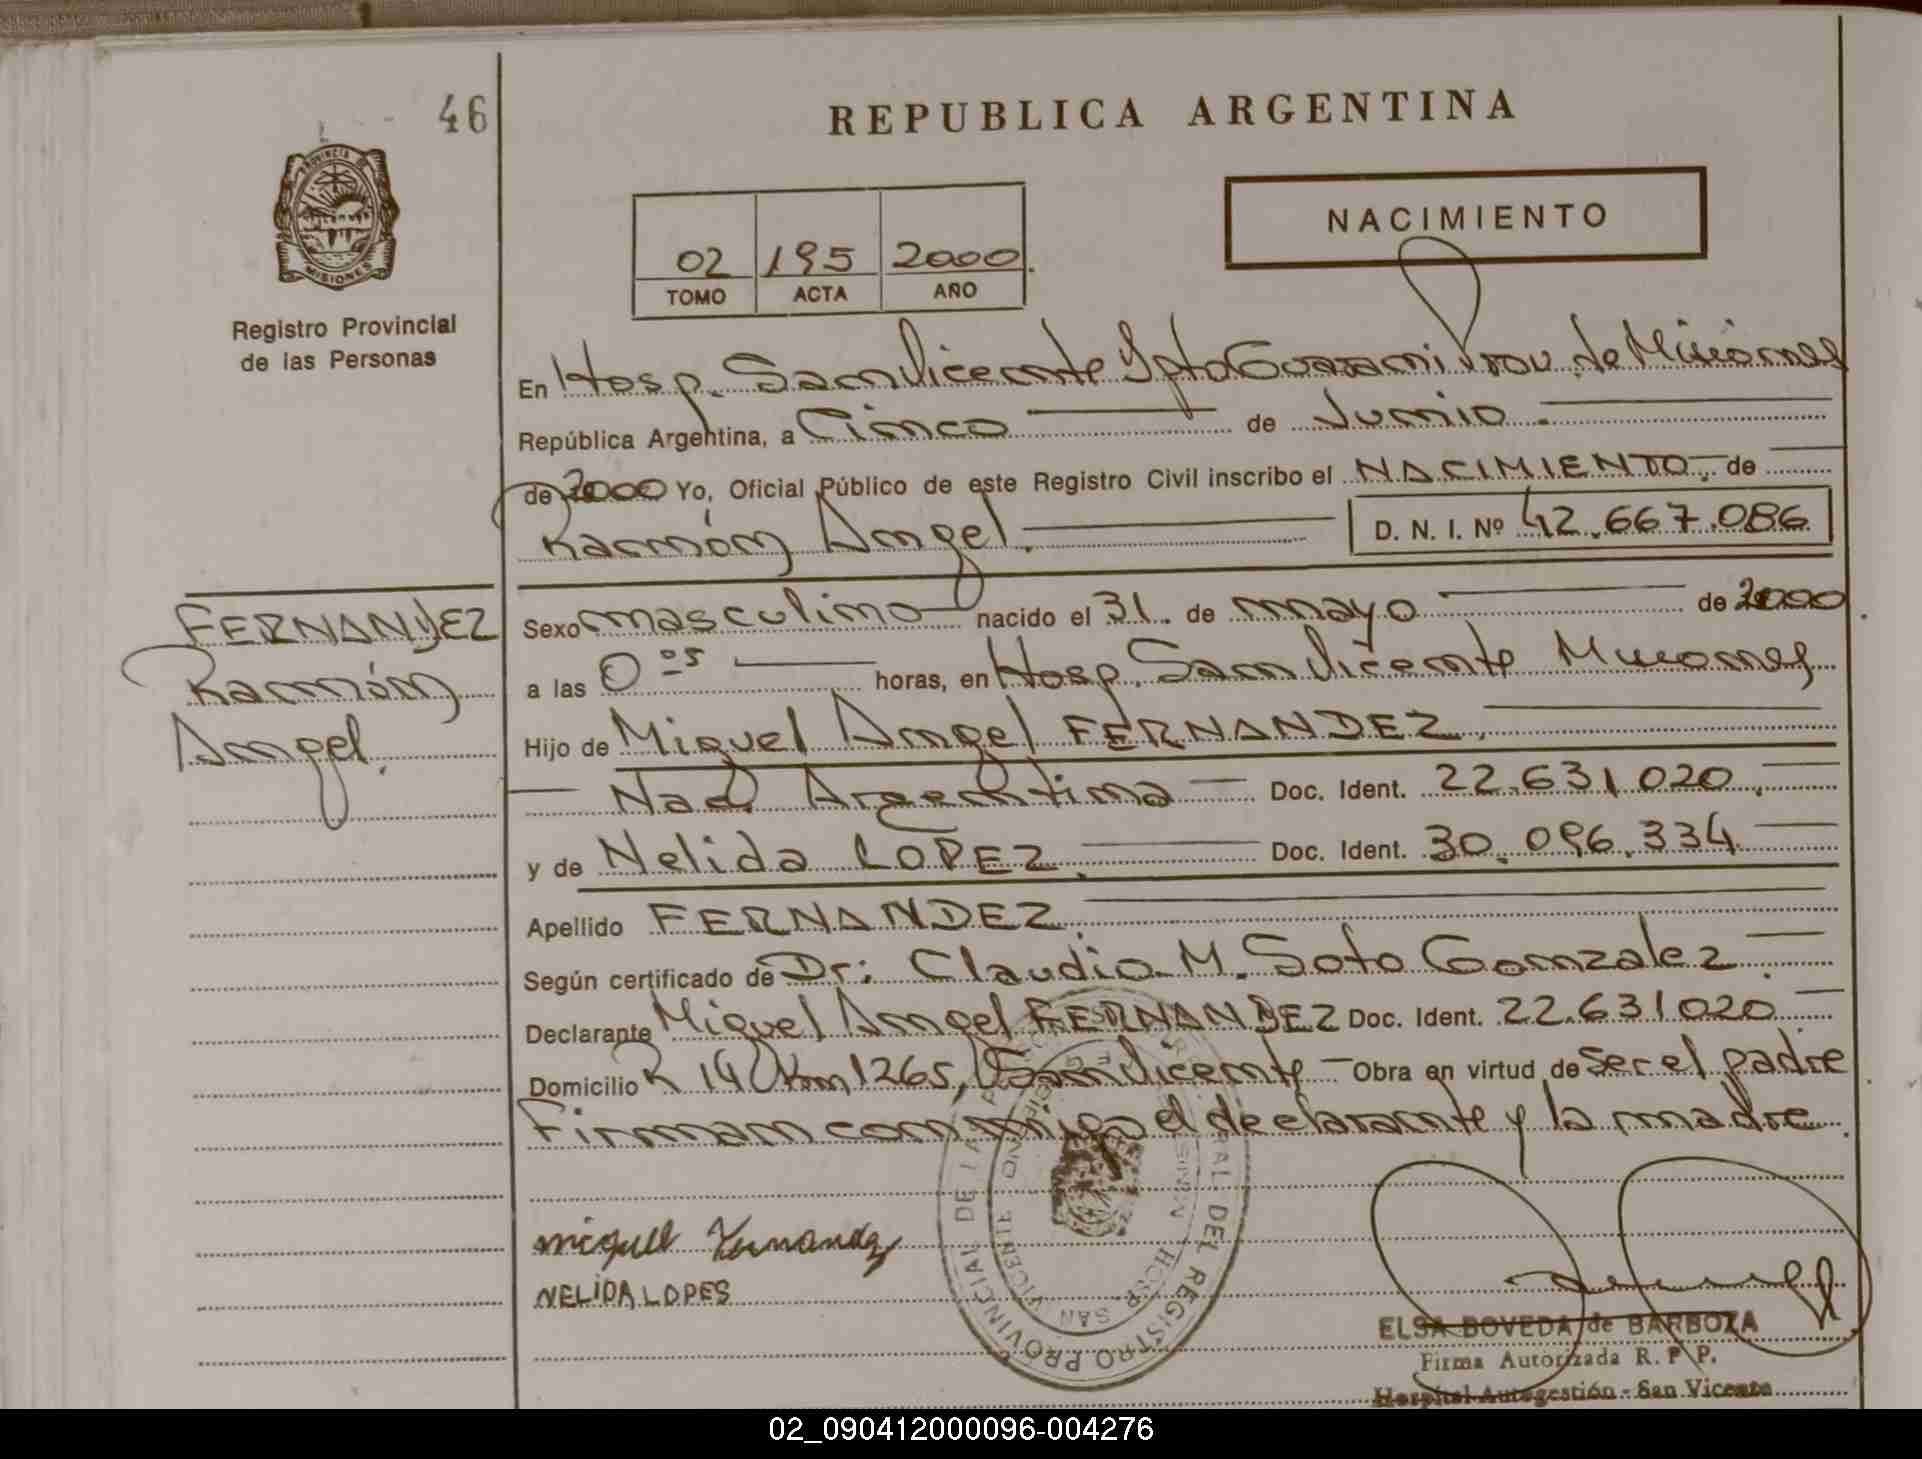 46
REPUBLICA ARGENTINA
PROVINCIA DE
MISIONES
Registro Provincial
de las Personas
NACIMIENTO
02 195 2000
TOMO ACTA AÑO
En Hosp. San Vicente Dpto Guarani Prov. de Misiones
República Argentina, a Cinco de Junio
de 2000 Yo, Oficial Público de este Registro Civil inscribo el NACIMIENTO de
Ramón Angel. D. N. I. Nº 42.667.086
FERNANDEZ
Ramón
Angel.
Sexo masculino nacido el 31 de mayo de 2000
a las 0 05 horas, en Hosp. San Vicente Misiones
Hijo de Miguel Angel FERNANDEZ
Nac. Argentina Doc. Ident. 22.631.020
y de Nelida LOPEZ Doc. Ident. 30.096.334
Apellido FERNANDEZ
Según certificado de Dr: Claudio M. Soto Gonzalez
Declarante Miguel Angel FERNANDEZ Doc. Ident. 22.631020
Domicilio R 14 Km 1265, San Vicente Obra en virtud de Ser el padre
Firman conmigo el declarante y la madre.
miguel Fernandez
NELIDA LOPES
PROVINCIAL DE LA
DEL REGISTRO
HOSP. SAN VICENTE
ELSA BOVEDA de BARBOZA
Firma Autorizada R. P. P.
Hospital Autogestión - San Vicente
02_090412000096-004276